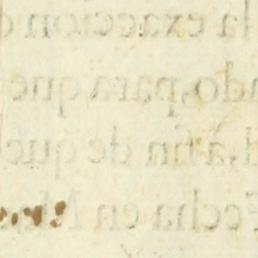 la exaccion d
ndo, para que
d, à fin de que
Fecha en M